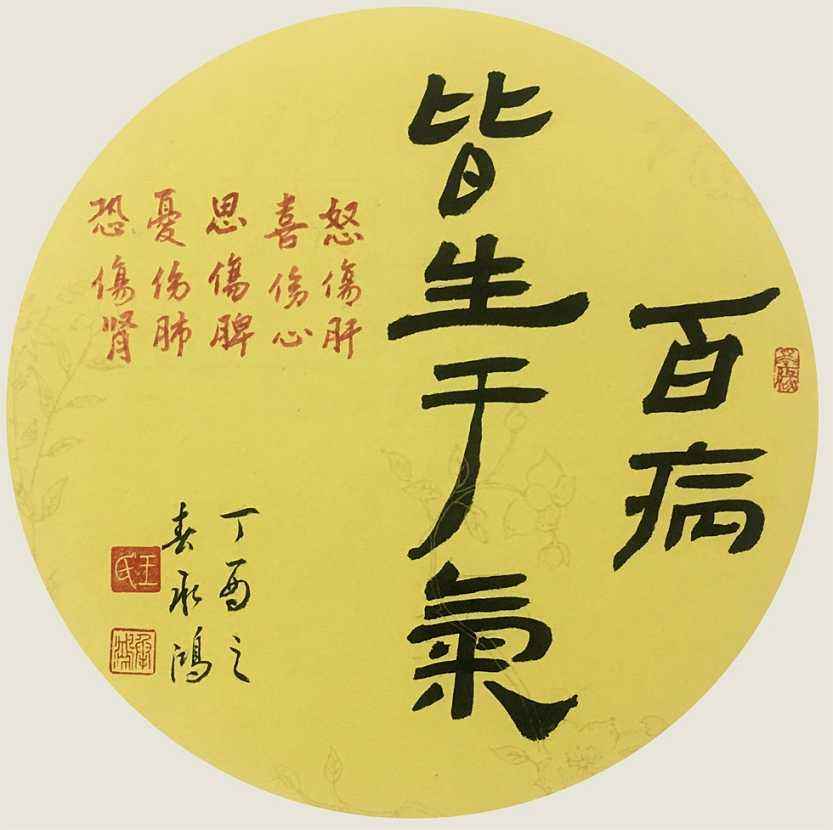 百病
皆生于氣
怒傷肝
喜傷心
思傷脾
憂傷肺
恐傷腎
丁酉之
春承鴻
王氏
承鴻